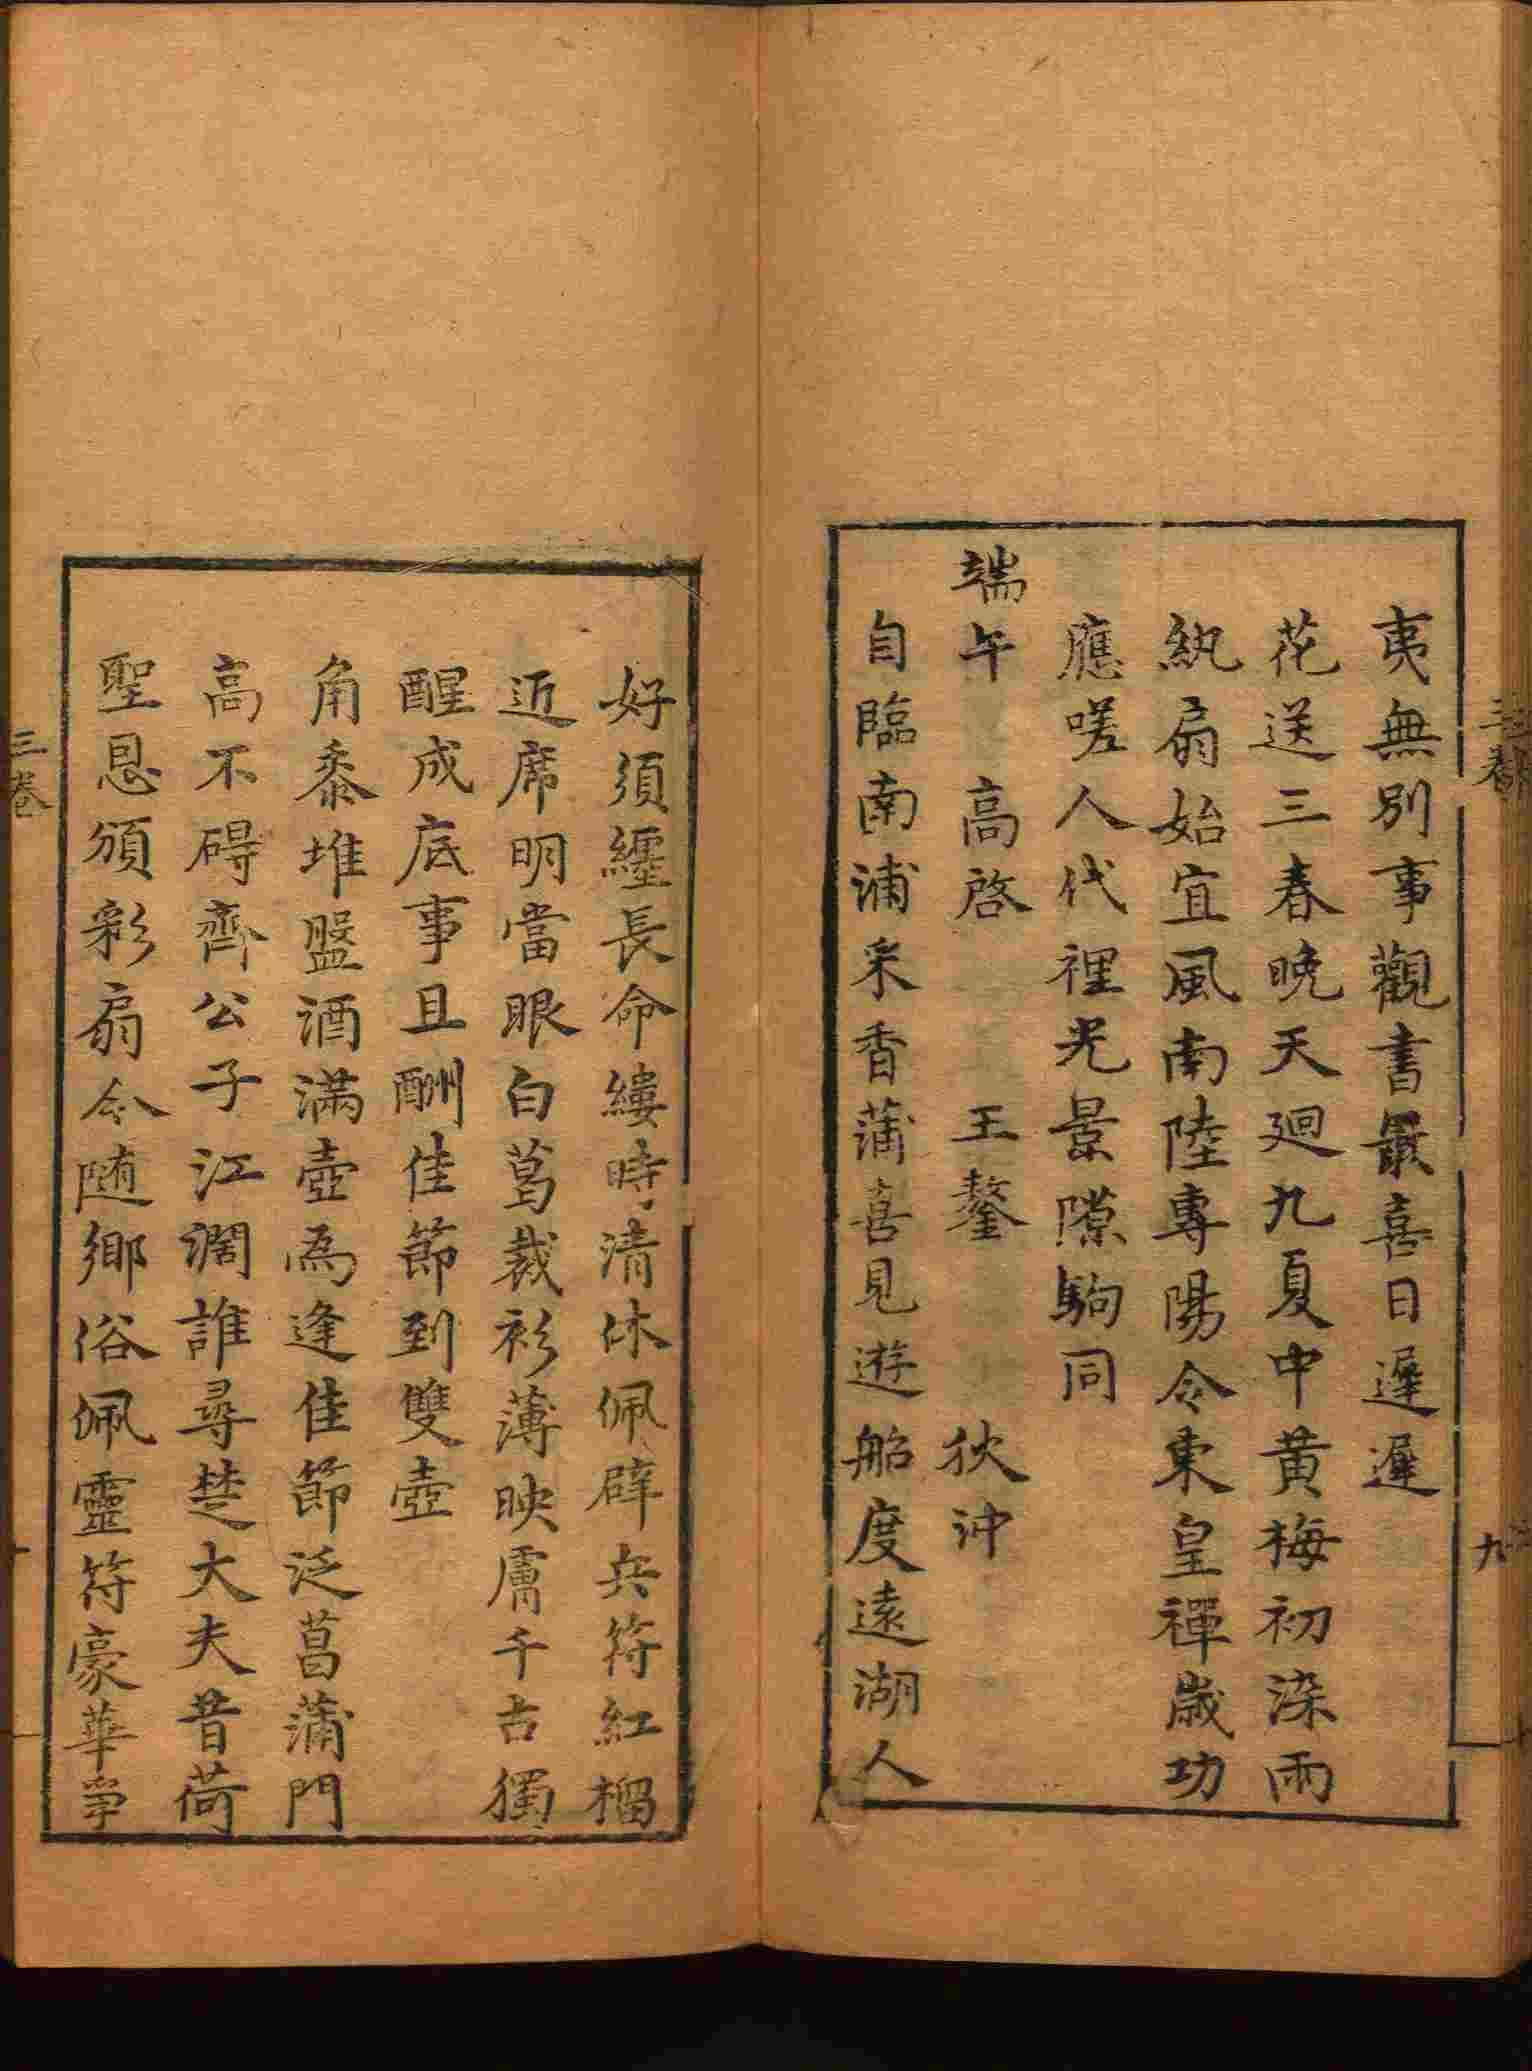 夷無別事觀書最喜日遲遲
花送三春晚天廻九夏中黃梅初染雨
紈扇始宜風南陸專陽令東皇禪歲功
應嗟人代裡光景隙駒同
端午　高啓　王鏊　狄沖
自臨南浦采香蒲喜見遊船度遠湖人
好須纏長命縷時清休佩辟兵符紅榴
近席明當眼白葛裁衫薄映膚千古獨
醒成底事且酬佳節到雙壺
角黍堆盤酒滿壺爲逢佳節泛菖蒲門
高不碍齊公子江濶誰尋楚大夫昔荷
聖恩頒彩扇今随鄉俗佩靈符豪華學
三卷
九
三卷